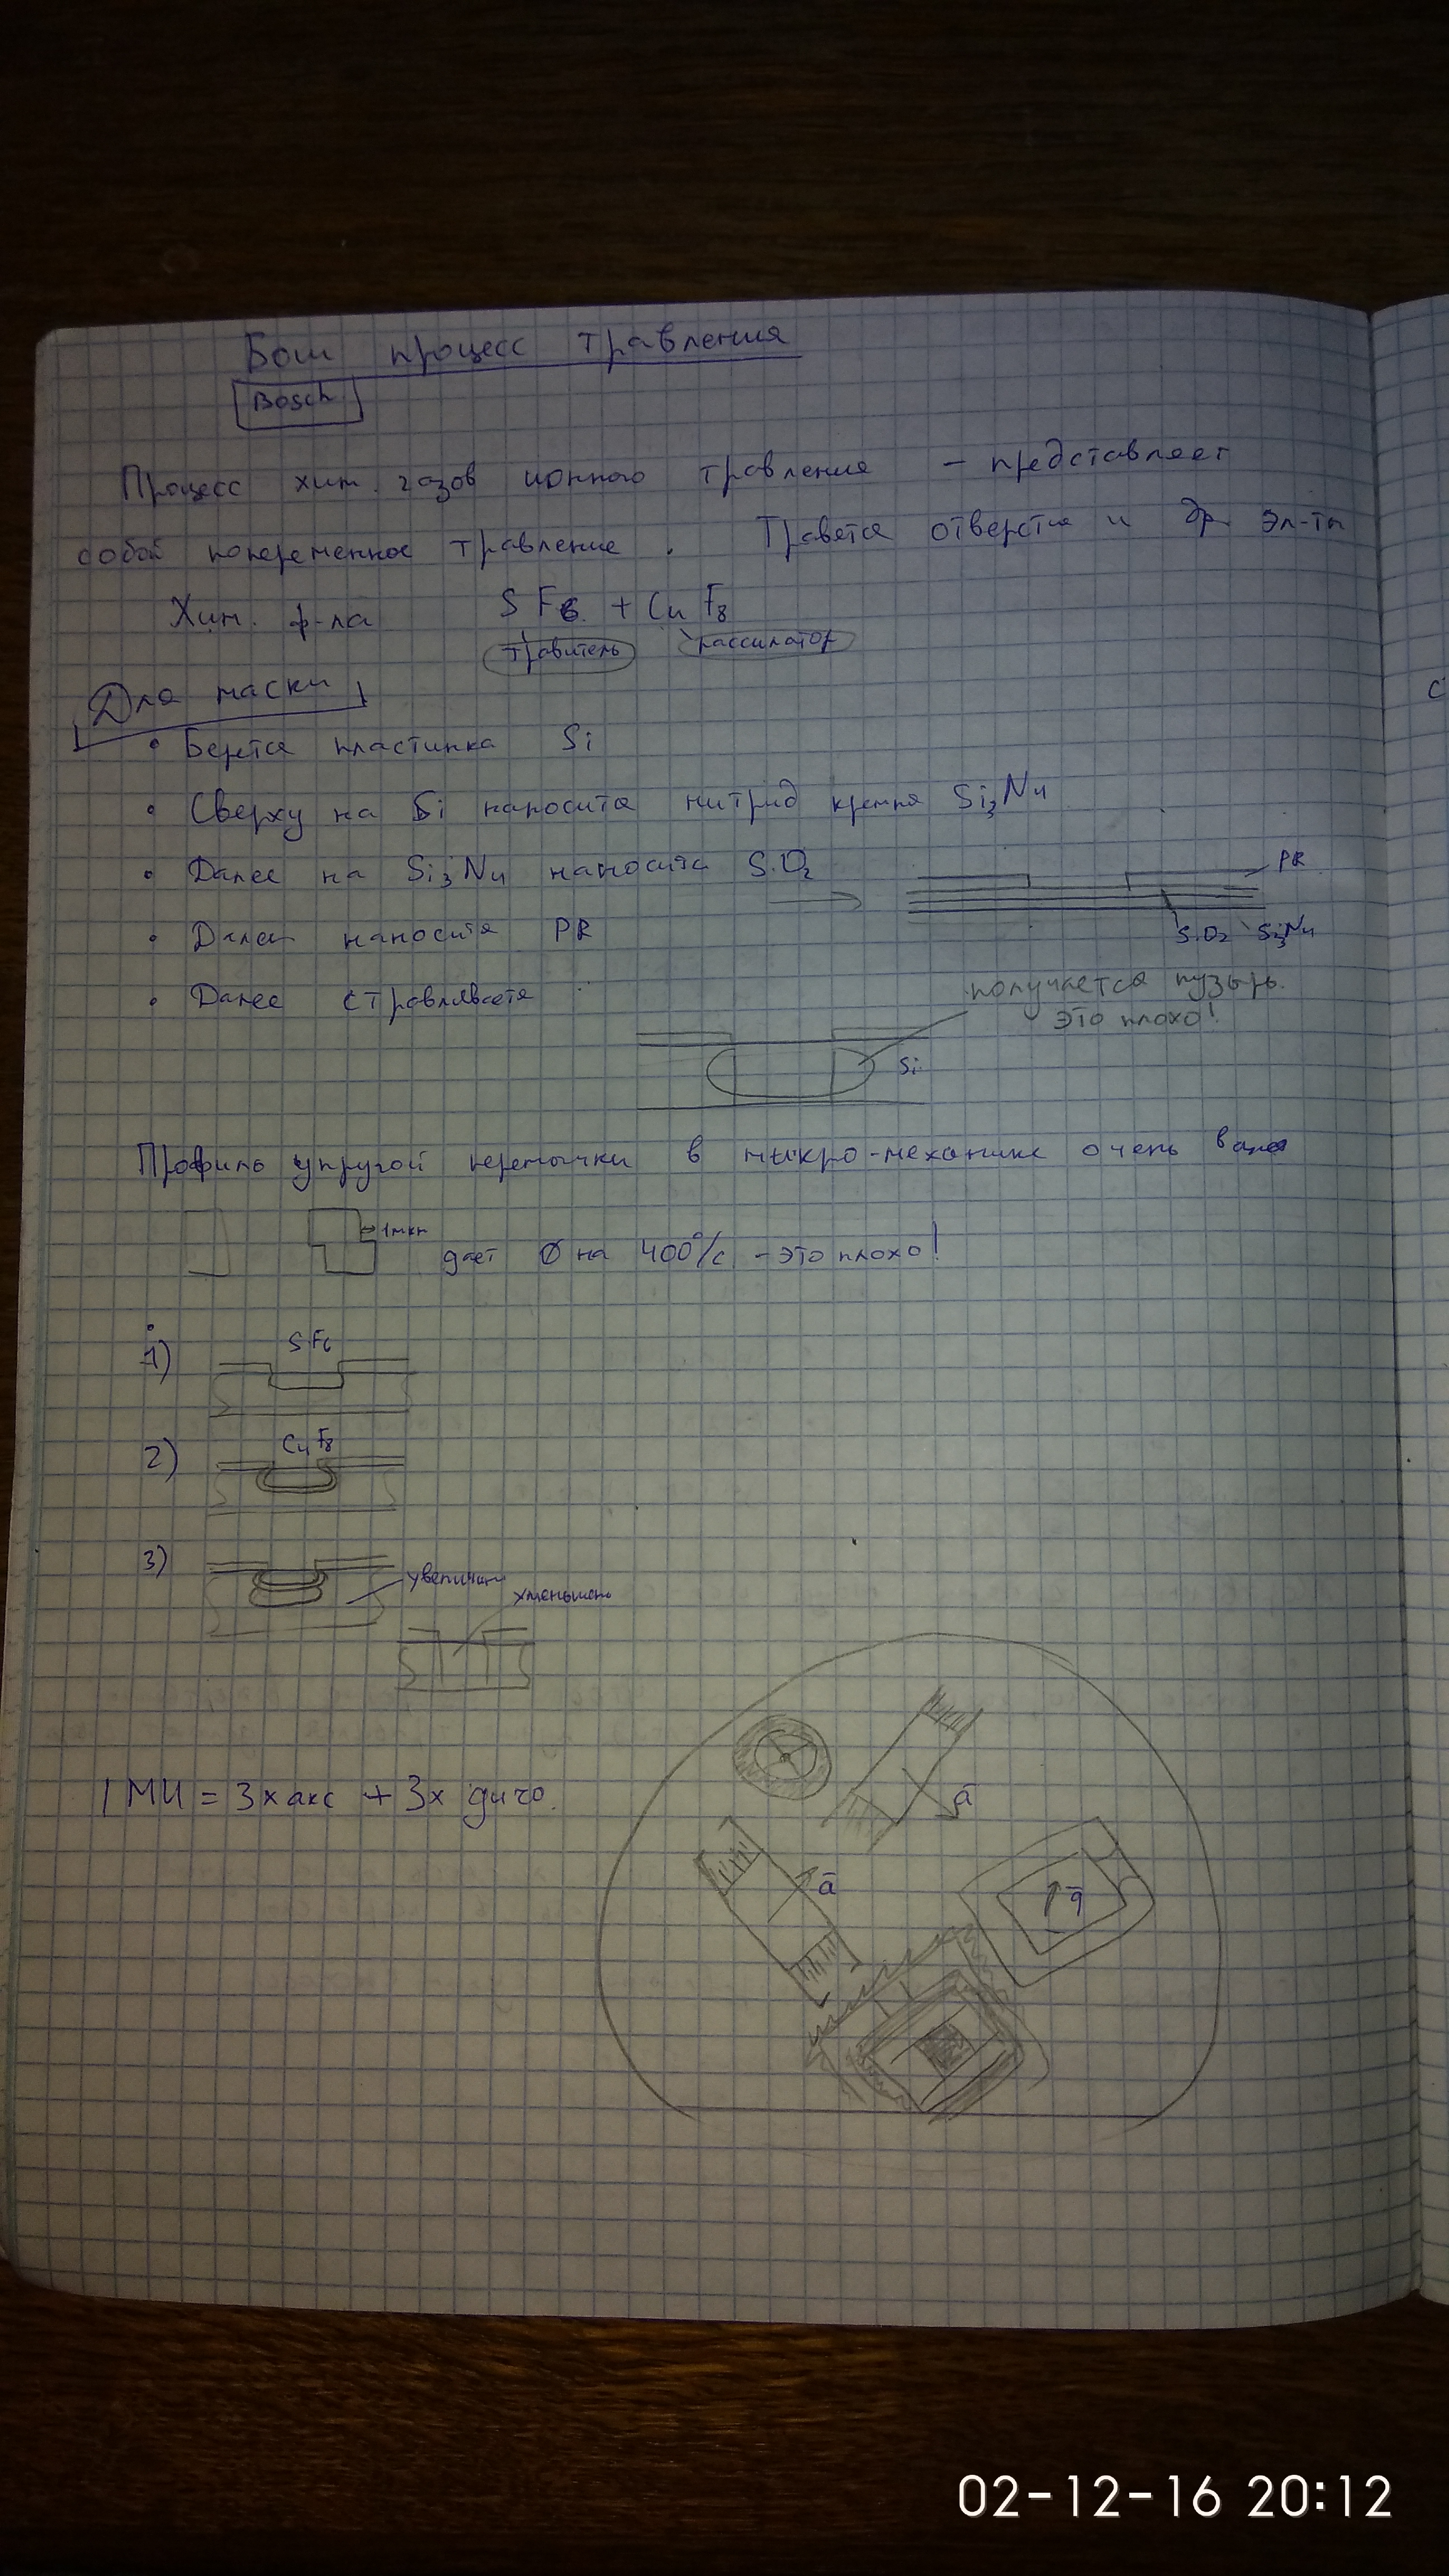 Бош процесс травления
Bosch
Процесс хим. газов ионного травления – представляет
собой попеременное травление. Травятся отверстия и др. эл-ты
Хим. ф-ла SF6 + C4F8
травитель пассиватор
Для маски
• Берётся пластинка Si
• Сверху на Si наносится нитрид кремния Si3N4
• Далее на Si3N4 наносится SiO2
PR
• Далее наносится PR
SiO2 Si3N4
• Далее стравливается
получается пузырь.
это плохо!
Si
Профиль упругой перемычки в микро-механике очень важен
1мкм
даёт Ø на 400°/с – это плохо!
1) SF6
2) C4F8
3)
увеличили
уменьшили
IМИ = 3х акс + 3х гиро.
a
a
g
02-12-16 20:12